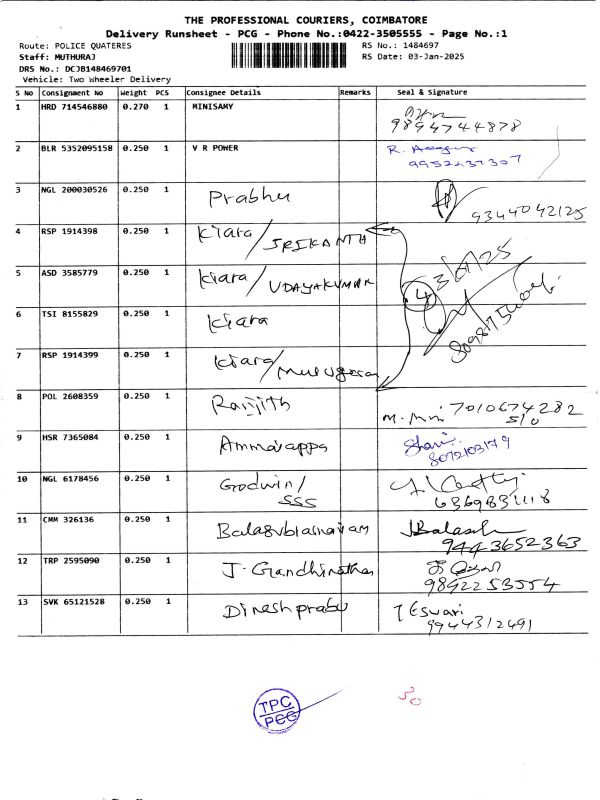 THE PROFESSIONAL COURIERS, COIMBATORE
Delivery Runsheet - PCG - Phone No.:0422-3505555 - Page No.:1
Route: POLICE QUATERES RS No.: 1484697
Staff: MUTHURAJ RS Date: 03-Jan-2025
DRS No.: DCJB148469701
Vehicle: Two Wheeler Delivery
S No Consignment No Weight PCS Consignee Details Remarks Seal & Signature
1 HRD 714546880 0.270 1 MINISAMY
9894744878
2 BLR 5352095158 0.250 1 V R POWER
3 NGL 200030526 0.250 1 Prabhu
9344042125
4 RSP 1914398 0.250 1 Kiara/SRIKANTH
5 ASD 3585779 0.250 1 Kiara/UDAYAKUMAR
4
6 TSI 8155829 0.250 1 Kiara
7 RSP 1914399 0.250 1 Kiara/Murugesan
8 POL 2608359 0.250 1 Ranjith
7010674282
S/O
9 HSR 7365084 0.250 1 Ammaiappa
8072103179
10 NGL 6178456 0.250 1 Godwin/
SSS
11 CMM 326136 0.250 1 Balasubramaniyam
9443652363
12 TRP 2595090 0.250 1 J. Gandhinathan
9892253554
13 SVK 65121528 0.250 1 Dinesh prabu T Eswari
9944312491
TPC
PCG